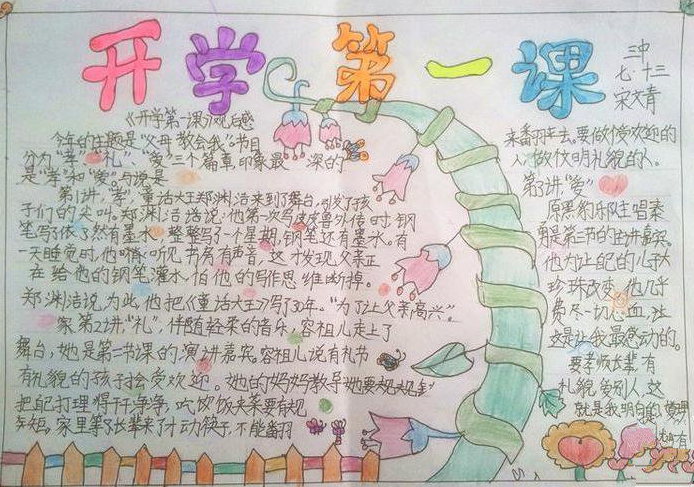 开学第一课
三中
七·十三
宋文青
《开学第一课》观后感
今年的主题是"父母教会我"节目
分为"孝""礼""爱"三个篇章,印象最深的
是"孝"和"爱"。
第1讲,"孝"童话大王郑渊洁来到了舞台,引发了孩
子们的尖叫。郑渊洁说他第一次写皮皮鲁外传时,钢
笔写
然有墨水,整整写了一个星期,钢笔还有墨水。有
一天睡觉时,他听见书房有声音,这才发现父亲正
在给他的钢笔灌水,怕他的写作思维断掉。
郑渊洁说,为此,他把《童话大王》写了30年。"为了让父亲高兴"。
第2讲,"礼",伴随轻柔的音乐,容祖儿走上了
舞台,她是第二节课的演讲嘉宾。容祖儿说有礼节
有礼貌的孩子才会受欢迎。她的妈妈教导她要规规矩
把自己打理得干干净净,吃饭夹菜要有规
矩,家里等长辈来了才动筷子,不能翻
来翻去。要做个受欢迎的
人,做个文明礼貌的人。
第3讲"爱"
原黑豹乐队主唱秦
勇是第三节的主讲嘉宾。
他为让自己的儿子大
珍珠改变,他几乎
费尽一切心血,这
这是让我最感动的。
要孝师长辈,有
礼貌,爱别人,这
就是我明白的